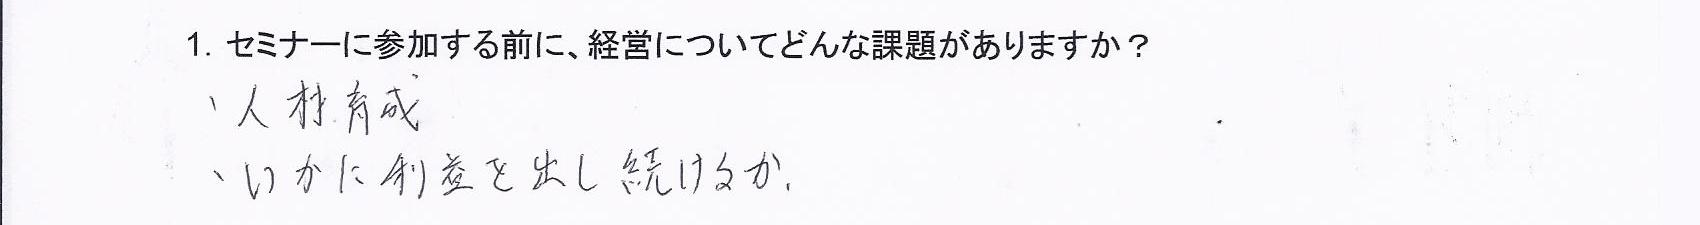 1. セミナーに参加する前に、経営についてどんな課題がありますか？
、人材育成
、いかに利益を出し続けるか.